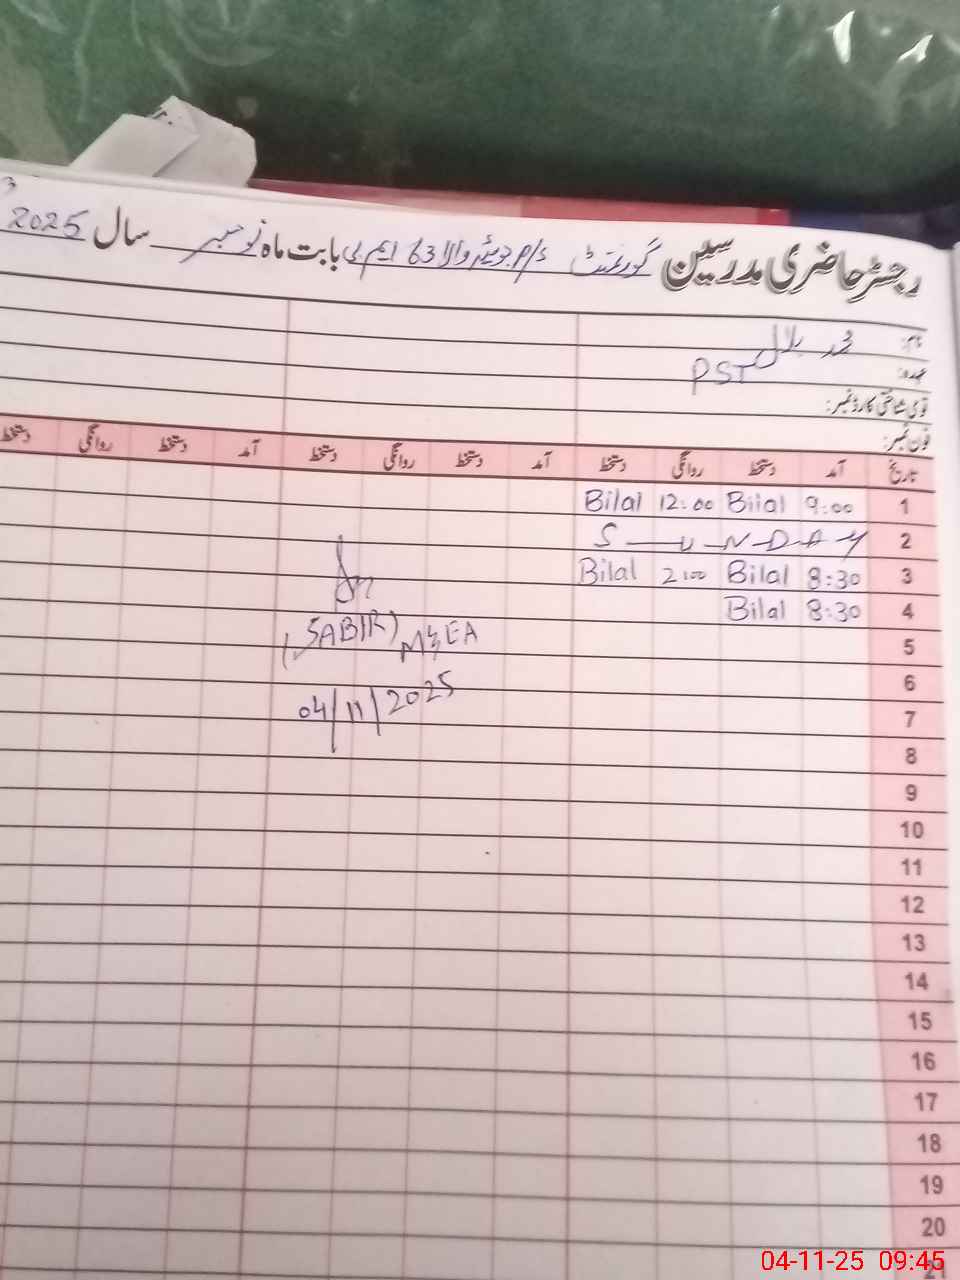 رجسٹر حاضری مدرسین گورنمنٹ p/s جوئیہ والا 63 ایم بی بابت ماہ نومبر سال 2025
نام: محمد بلال
عہدہ: PST
قومی شناختی کارڈ نمبر:
فون نمبر:
تاریخ آمد دستخط روانگی دستخط آمد دستخط روانگی دستخط آمد دستخط روانگی دستخط
1 9:00 Bilal 12:00 Bilal
2 S U N D A Y
3 8:30 Bilal 2:00 Bilal
4 8:30 Bilal
5
(SABIR) M&EA
6
04/11/2025
7
8
9
10
11
12
13
14
15
16
17
18
19
20
21
04-11-25 09:45